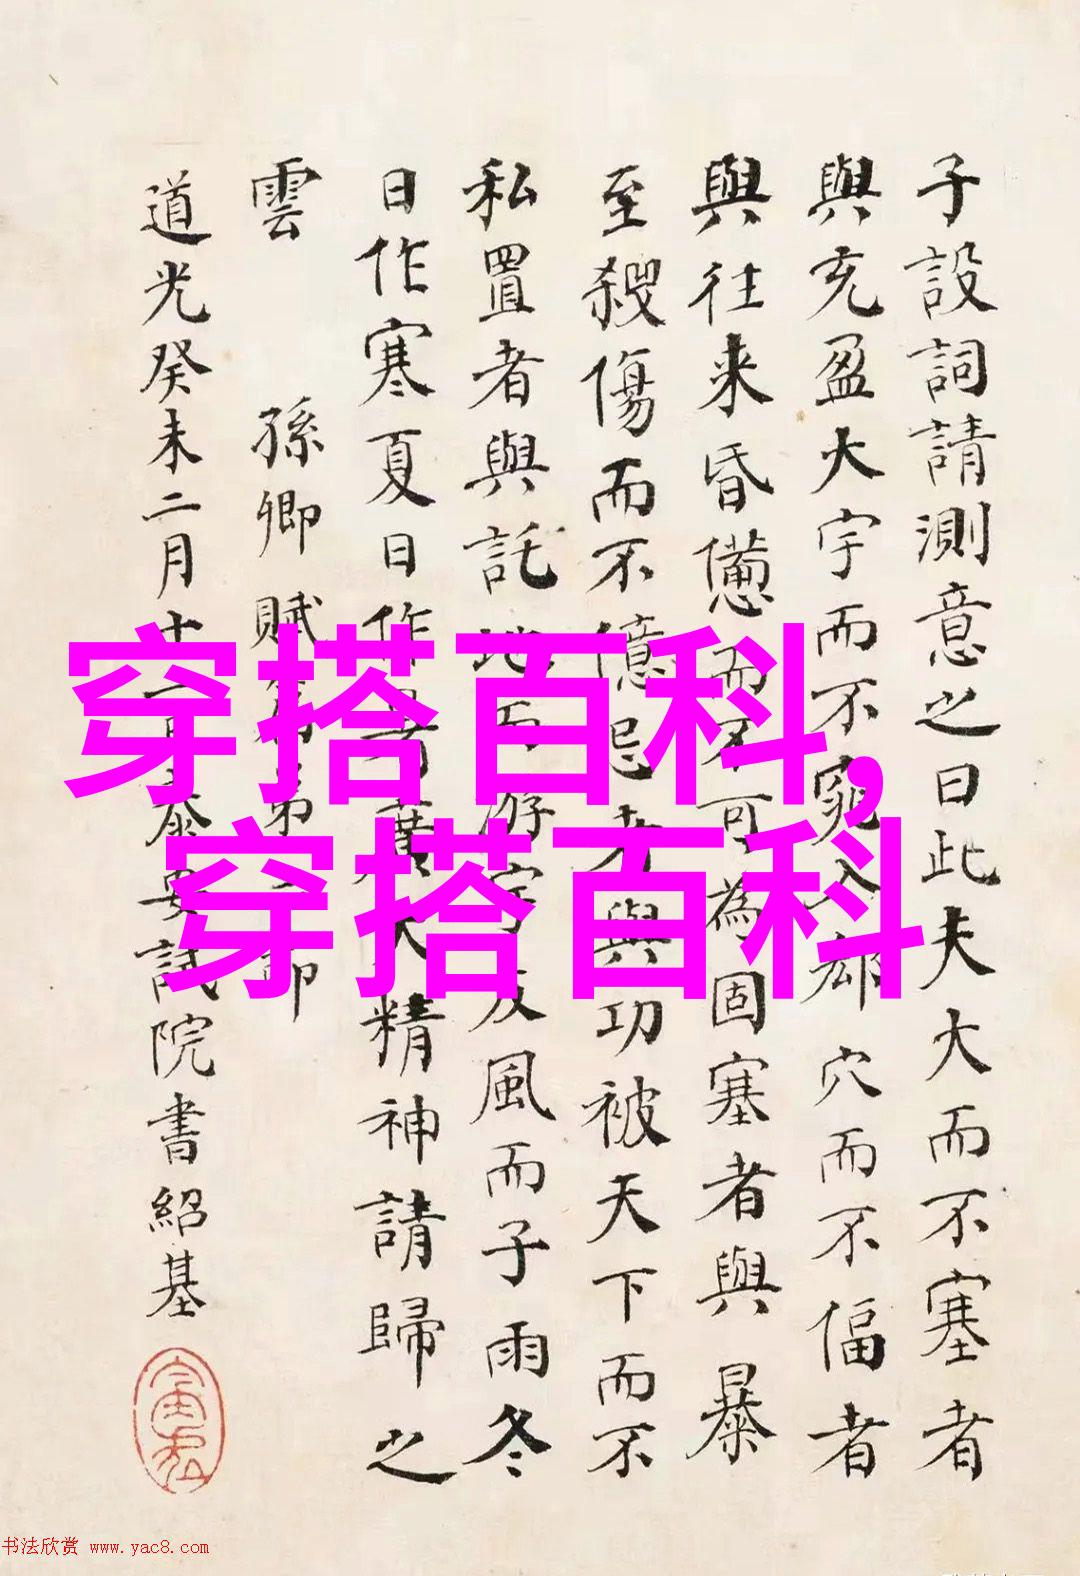 子設詞請測意之曰此夫大而不塞者
與充盈大宇而不窕入郄穴而不偪者
與往来昏憊而不可為固塞者與暴
至殺傷而不億忌者與功被天下而不
私置者與託地而游宇友風而子雨冬
日作寒夏日作暑廣大精神請歸之
雲 孫卿賦篇弟
道光癸未二月十一日泰安試院書紹基
穿搭百科,
穿搭百科
书法欣赏 www.yac8.com